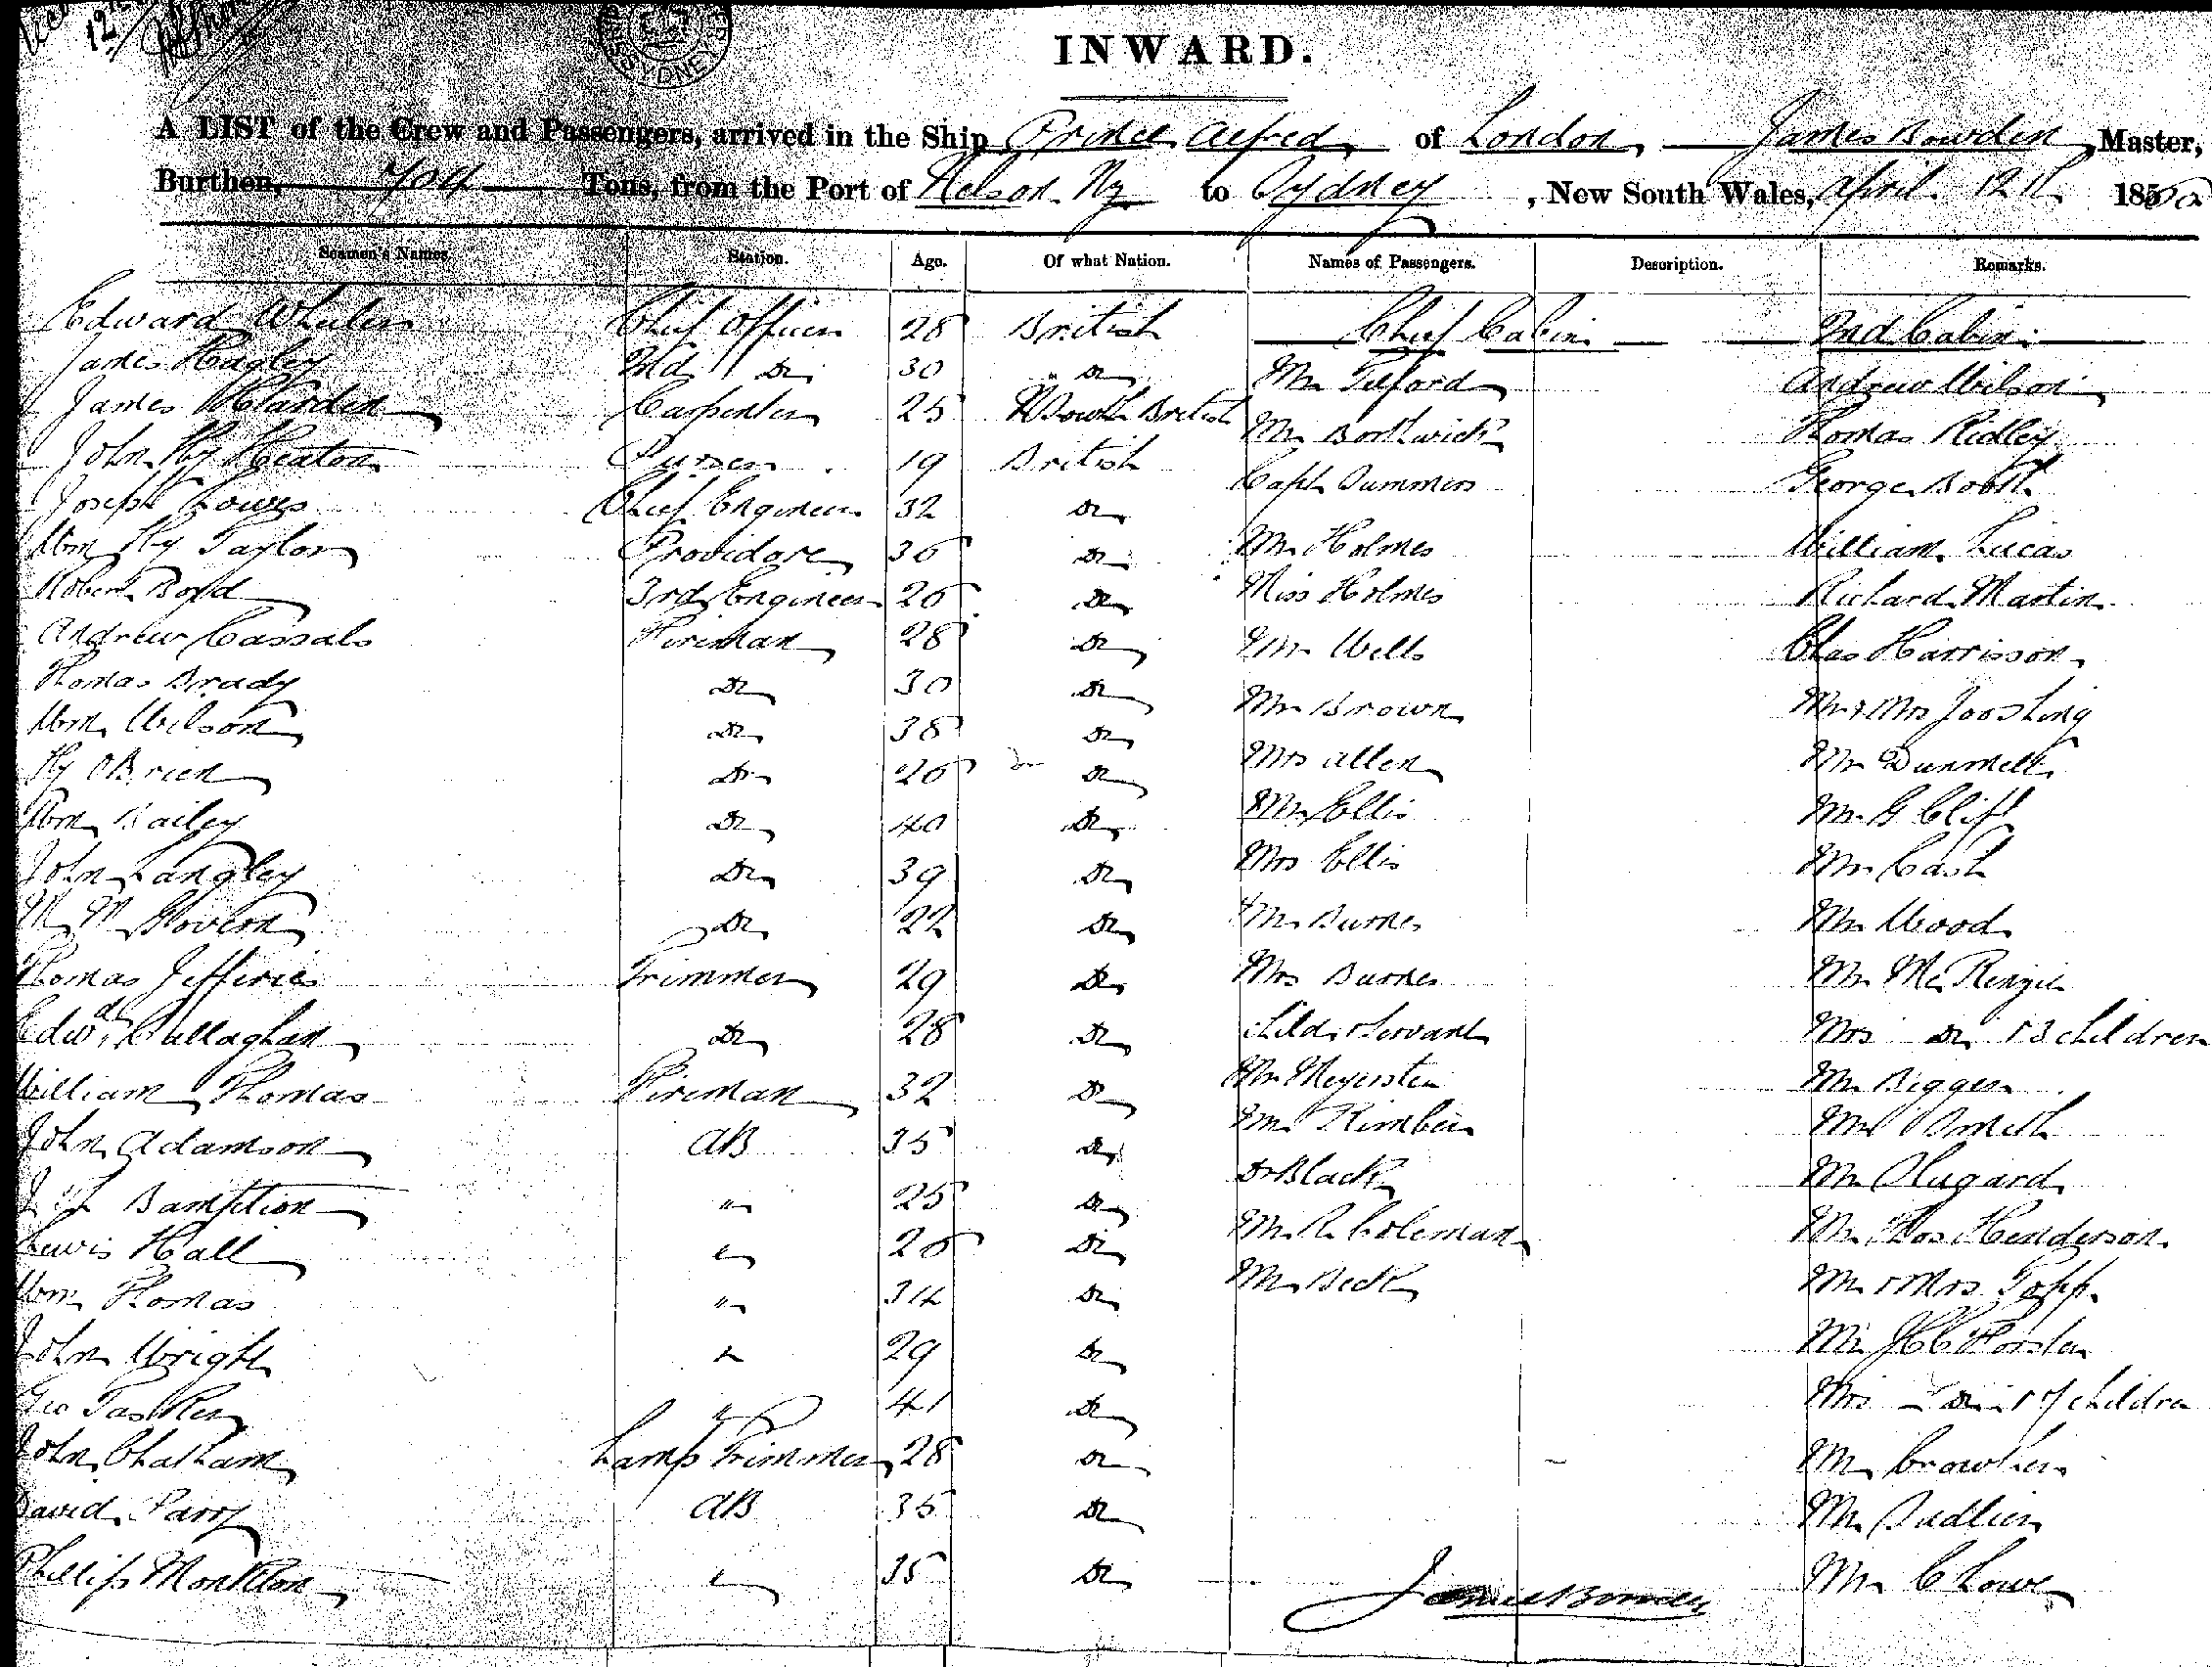 12
SYDNEY
INWARD.
A LIST of the Crew and Passengers, arrived in the Ship Prince Alfred of London, James Bowden, Master,
Burthen, 704 Tons, from the Port of Nelson NZ to Sydney, New South Wales, April 12th 1860
Seamen's Names Station. Age. Of what Nation. Names of Passengers. Description. Remarks.
Edward Wheeler Chief Officer 28 British Chief Cabin 2nd Cabin
James Hagley 2nd Do 30 Do Mr Telford Andrew Wilson
James Harden Carpenter 25 British Mr Borthwick Thomas Ridley
John Hy Heaton Purser 19 British Capt Summers George Booth
Joseph Lowes Chief Engineer 32 Do
Wm Hy Taylor Providore 36 Do Mr Holmes William Lucas
Robert Boyd 3rd Engineer 26 Do Miss Holmes Richard Martin
Andrew Cassals Fireman 28 Do Mr Wells Chas Harrisson
Thomas Brady Do 30 Do Mr Brown Mr & Mrs Joosling
Wm Wilson Do 38 Do
Hy OBrien Do 26 Do Mrs Allen Mr Dunmett
Wm Bailey Do 40 Do Mr Ellis Mr G Clift
John Langley Do 39 Do Mrs Ellis Mr Cash
M McGovern Do 22 Do Mr Burnes Mr Wood
Thomas Jefferies Trimmer 29 Do Mrs Burnes Mr McKenzie
Edwd Callaghan Do 28 Do child & servant Mrs Do & 3 children
William Thomas Fireman 32 Do Mr Meyerstein Mr Bigger
John Adamson AB 35 Do Mr Kimber Mr Smith
Bampton " 25 Do Dr Black Mr Slugard
Lewis Hall " 26 Do Mr R Coleman Mr Thos Henderson
Wm Thomas " 34 Do Mr Beck Mr & Mrs Topp
John Wright " 29 Do Mr
Geo Tasker " 41 Do Mrs Do & 7 childrn
John Chatham Lamp Trimmer 28 Do Mr Crowther
David Parry AB 35 Do Mr Sadlier
Phillip Monkton " 35 Do Mr C Lowe
James Bowden